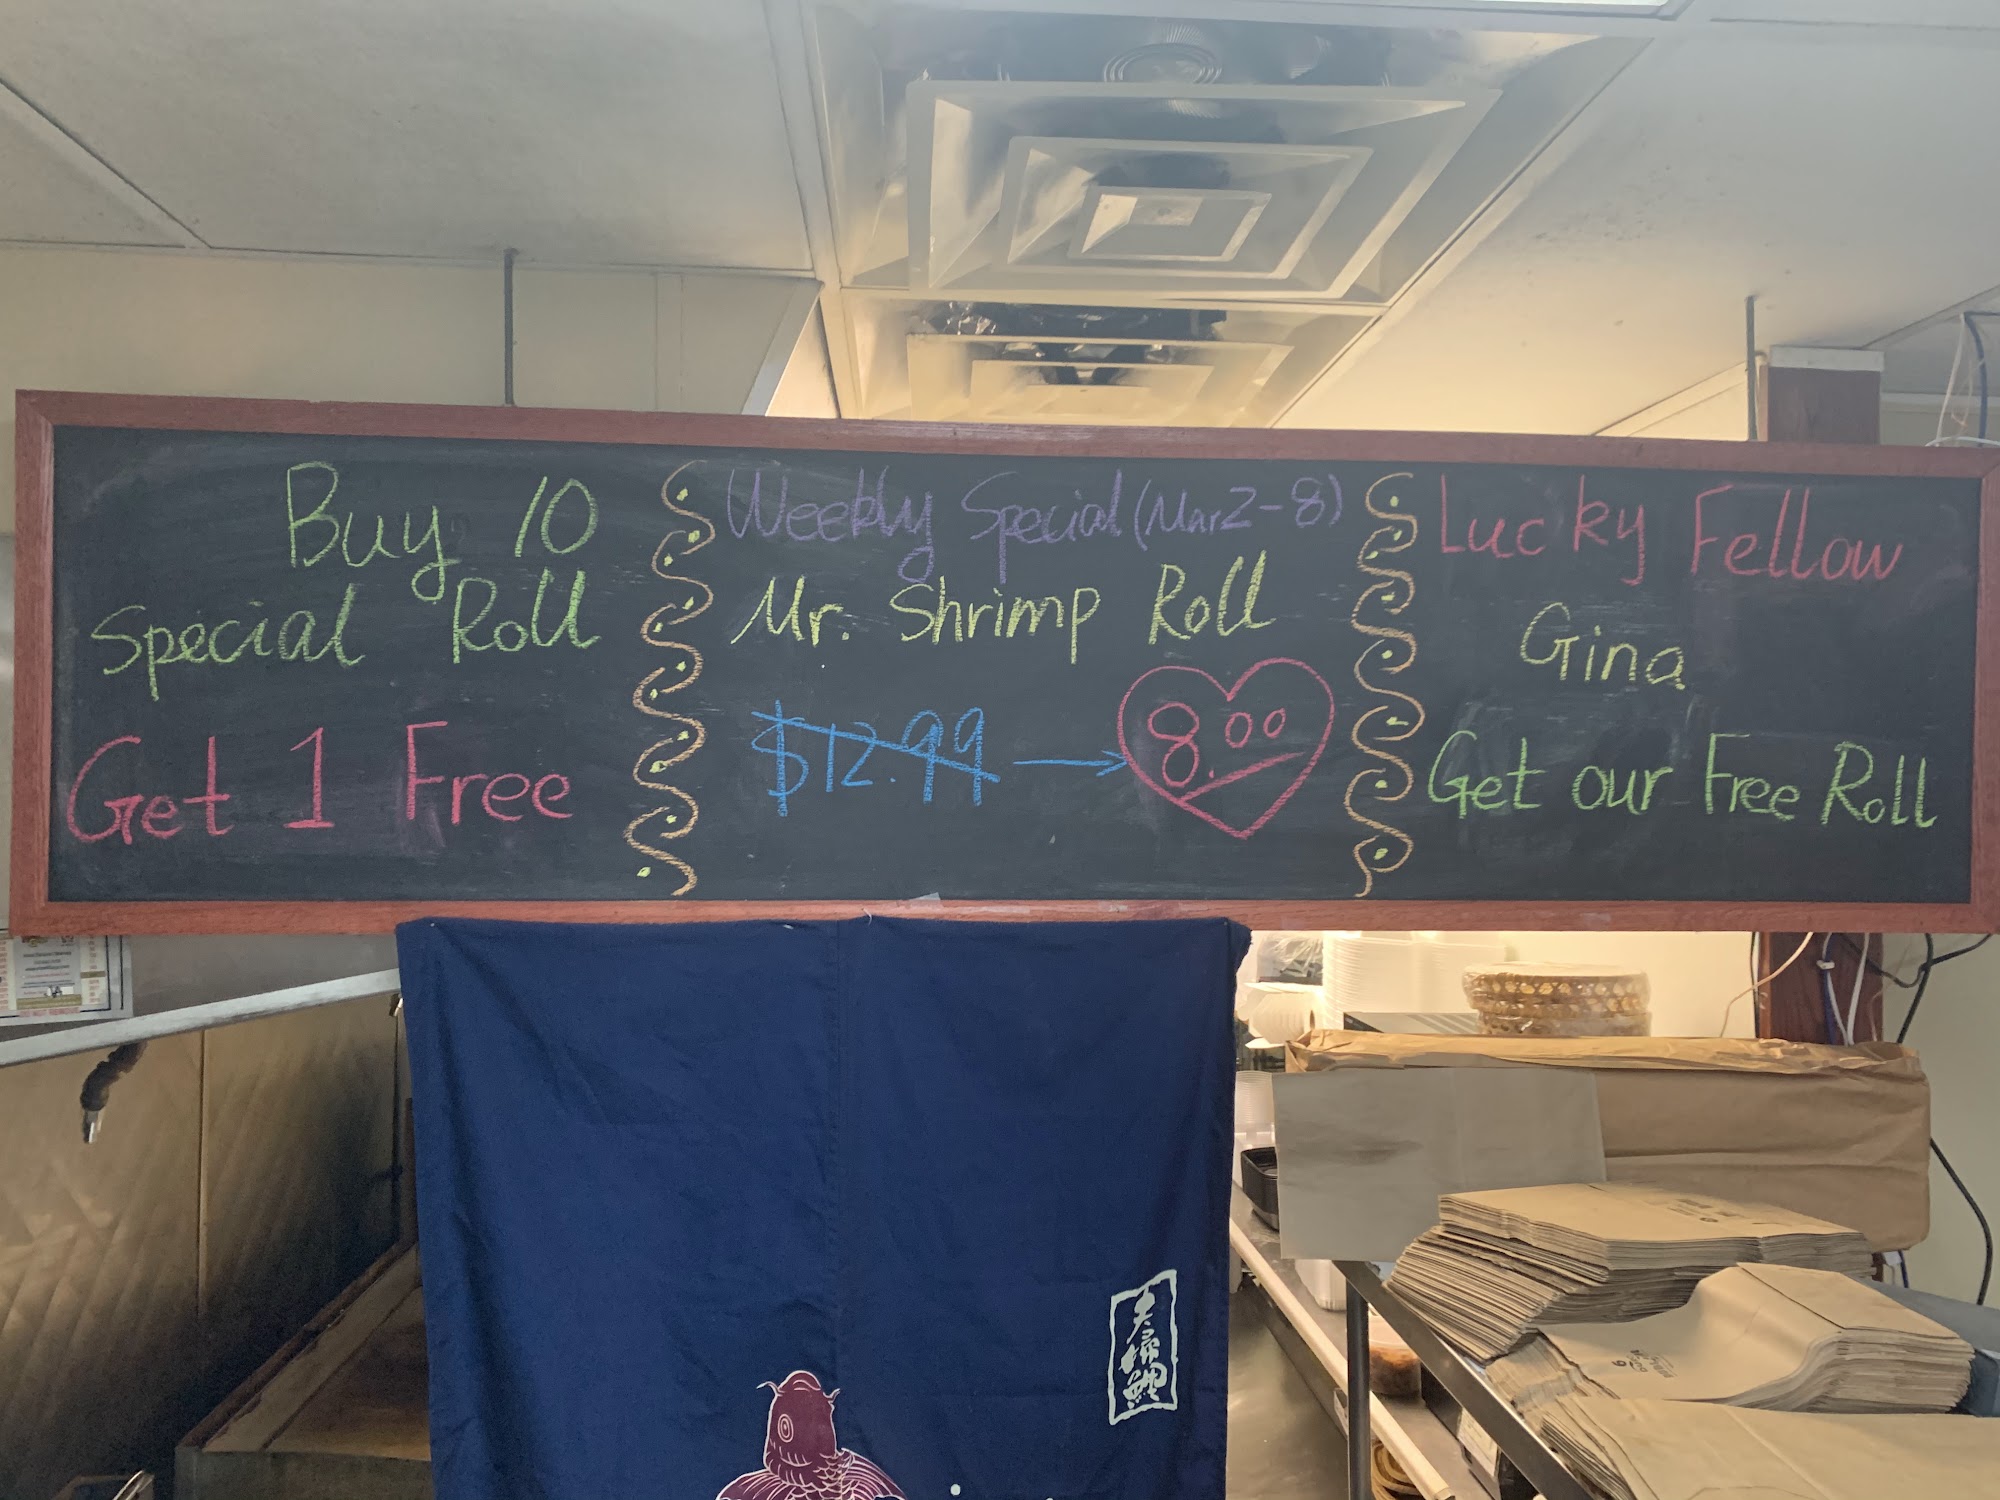 Buy 10
Special Roll
Get 1 Free
Weekly Special (Mar 2-8)
Mr. Shrimp Roll
$12.99
8.00
Lucky Fellow
Gina
Get our Free Roll
夫婦鯉